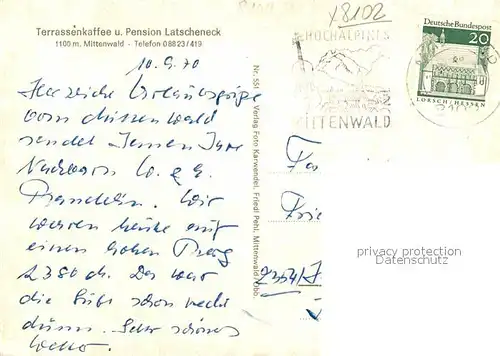 x8102
Terrassenkaffee u. Pension Latscheneck
1100 m. Mittenwald - Telefon 08823/419
HOCHALPINES
MITTENWALD
Deutsche Bundespost
20
LORSCH/HESSEN
10.9.70
Herzliche Urlaubsgrüße
vom Mittenwald
sendet Ihnen Ihre
Nachbarn W. u. G.
Wir
waren heute auf
einen hohen Berg
2380 m. Da war
die Luft schon recht
dünn. Sehr schönes
Wetter.
Nr. 551 Verlag Foto Karwendel, Friedl Pehl, Mittenwald Obb.
Fa
Frie
privacy protection
Datenschutz